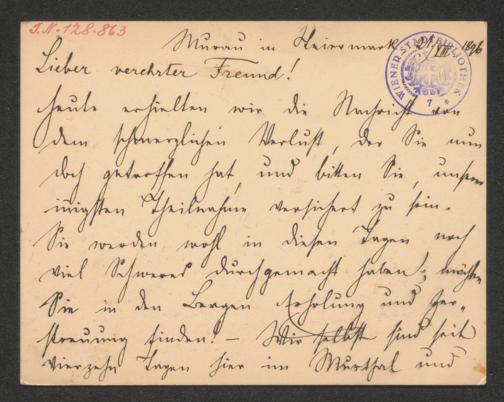 J.N. 128.863
Murau in Steiermark 21/VIII 1896
WIENER STADTBIBLIOTHEK
Lieber verehrter Freund!
Heute erhielten wir die Nachricht von
dem schmerzlichen Verlust, der Sie nun
doch getroffen hat, und bitten Sie, unserer
innigsten Theilnahme versichert zu sein.
Sie werden wohl in diesen Tagen noch
viel Schweres durchgemacht haben; möchten
Sie in den Bergen Erholung und Zer-
streuung finden! – Wir selbst sind seit
vierzehn Tagen hier im Murthal und